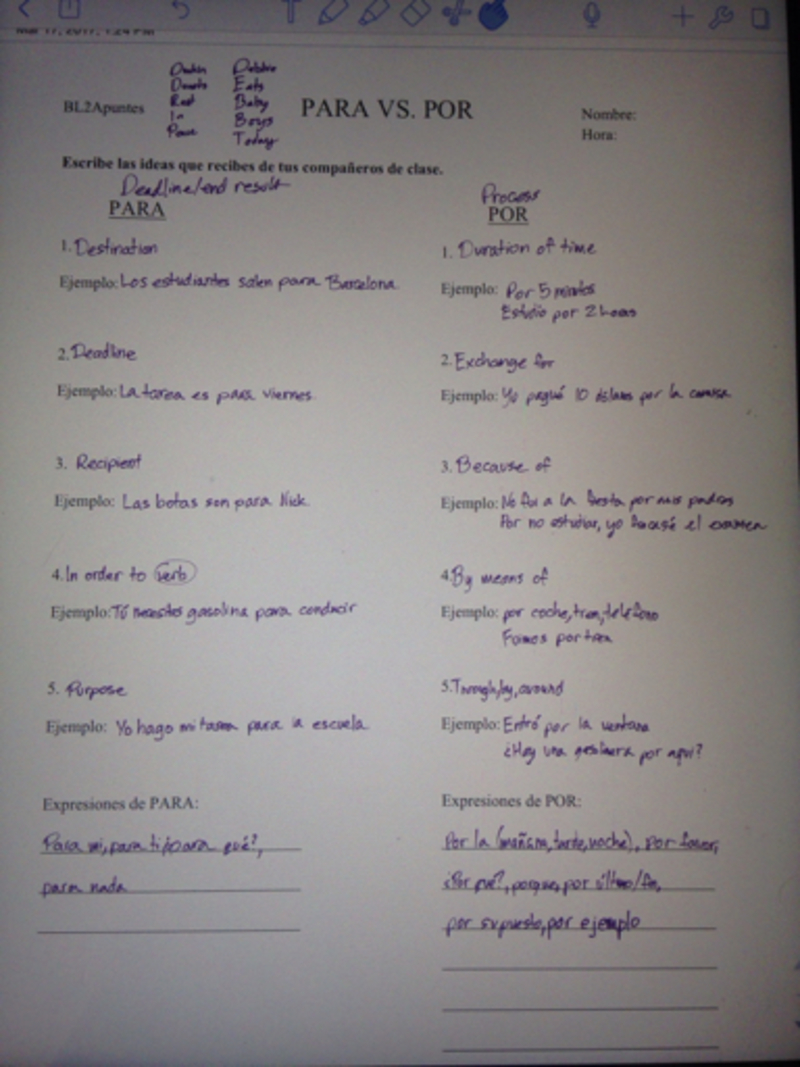 Mar 17, 2017, 1:24 PM
Debbie
Donuts Eats
Red Baby
In Boys
Today
BL2Apuntes PARA VS. POR Nombre:
Hora:
Escribe las ideas que recibes de tus compañeros de clase.
Deadline/end result
PARA
1. Destination
Ejemplo: Los estudiantes salen para Barcelona
2. Deadline
Ejemplo: La tarea es para viernes
3. Recipient
Ejemplo: Las botas son para Nick.
4. In order to verb
Ejemplo: Tú necesitas gasolina para conducir
5. Purpose
Ejemplo: Yo hago mi tarea para la escuela
Expresiones de PARA:
Para mi, para ti, para qué?,
para nada
Process
POR
1. Duration of time
Ejemplo: Por 5 minutos
Estudio por 2 horas
2. Exchange for
Ejemplo: Yo pagué 10 dólares por la camisa
3. Because of
Ejemplo: No fui a la fiesta por mis padres
Por no estudiar, yo fracasé el examen
4. By means of
Ejemplo: por coche, tren, teléfono
Fuimos por tren
5. Through, by, around
Ejemplo: Entró por la ventana
¿Hay una por aquí?
Expresiones de POR:
Por la (mañana, tarde, noche), por favor,
¿Por qué?, porque, por último/fin,
por supuesto, por ejemplo